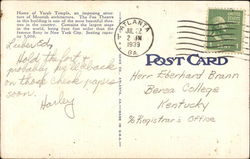 Home of Yaarab Temple, an imposing struc-
ture of Moorish architecture. The Fox Theatre
in this building is one of the most beautiful thea-
tres in the country. Contains the largest stage
in the world, being four feet wider than the
famous Roxy in New York City. Seating capac-
ity 5,000.
ATLANTA
JUL 22
2 PM
1939
GA.
POST CARD
Lieber Eb,
Hold the fort &
probably pay back
on those check papers
soon.
Harley
Herr Eberhard Brann
Berea College
Kentucky
% Registrar's Office